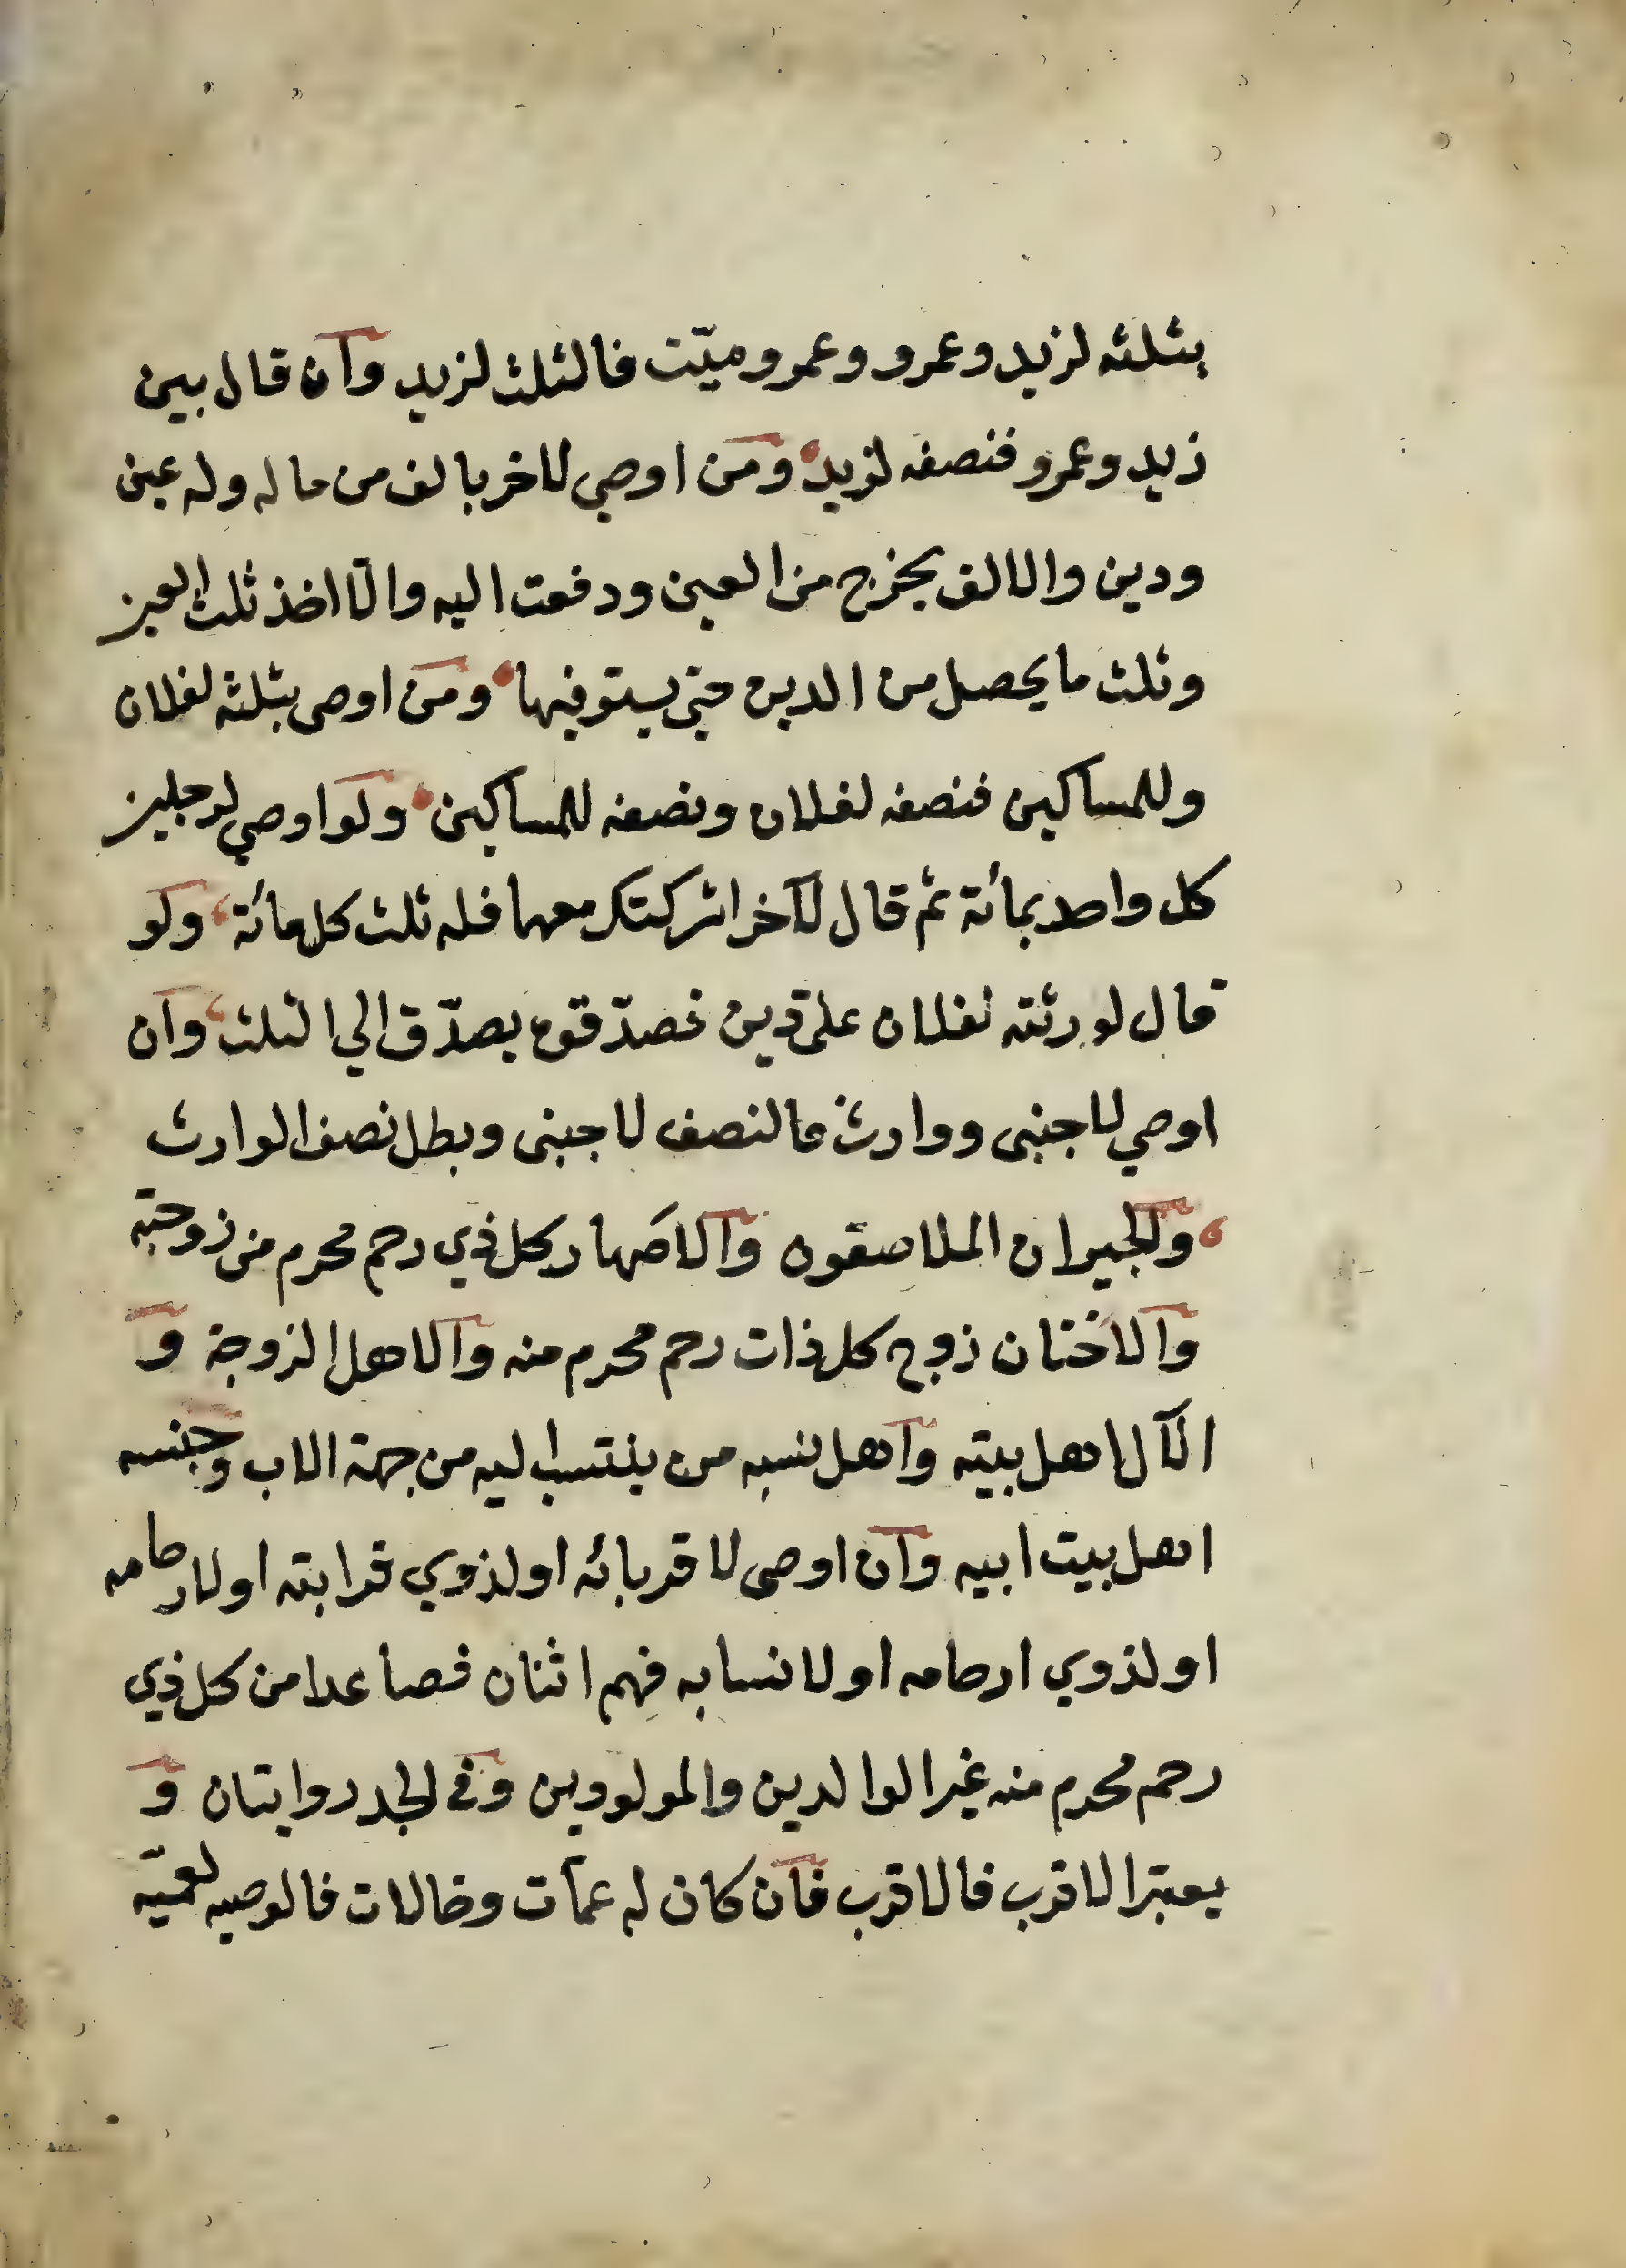 بثلثه لزيد وعمرو وعمرو ميّت فالثلث لزيد وان قال بين
زيد وعمرو فنصفه لزيد ومن اوصي لاخر بالف من ماله وله عين
ودين والالف يخرج من العين ودفعت اليه والّا اخذ ثلث العين
وثلث ما يحصل من الدين حتى يستوفيها ومن اوصى بثلثه لفلان
وللمساكين فنصفه لفلان ونصفه للمساكين ولو اوصي لرجلين
كل واحد بمائة ثم قال لآخر اشركتك معهما فله ثلث كل مائة ولو
قال لورثته لفلان علىّ دين فصدّقوه يصدّق الي الثلث وان
اوصي لاجنبى ووارث فالنصف لاجبنى وبطل نصف الوارث
والجيران الملاصقون والاصهار كل ذي رحم محرم من زوجته
والاختان زوج كل ذات رحم محرم منه والاهل الزوجة و
الآل اهل بيته واهل نسبه من ينتسب اليه من جهة الاب وجنسه
اهل بيت ابيه وان اوصى لاقربائه او لذوي قرابته او لارحامه
او لذوي ارحامه او لانسابه فهم اثنان فصاعدا من كل ذي
رحم محرم منه غير الوالدين والمولودين وفي الجد روايتان و
يعتبر الاقرب فالاقرب فان كان له عمّات وخالات فالوصيه لعميّه